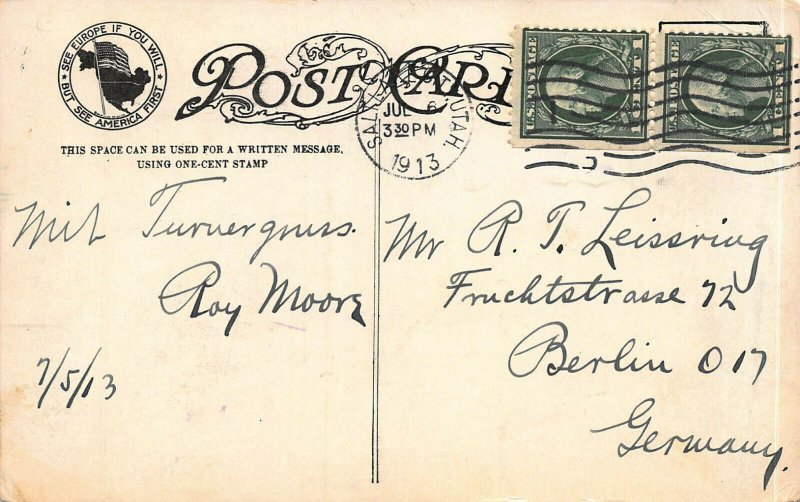 SEE EUROPE IF YOU WILL
BUT SEE AMERICA FIRST
POST CARD
THIS SPACE CAN BE USED FOR A WRITTEN MESSAGE,
USING ONE-CENT STAMP
SALT LAKE CITY, UTAH.
JUL 6
3 30 PM
1913
U.S. POSTAGE
1 CENT 1
U.S. POSTAGE
1 CENT 1
Mit Turnergruss.
Roy Moore
7/5/13
Mr R. T. Leissring
Fruchtstrasse 72
Berlin O 17
Germany.